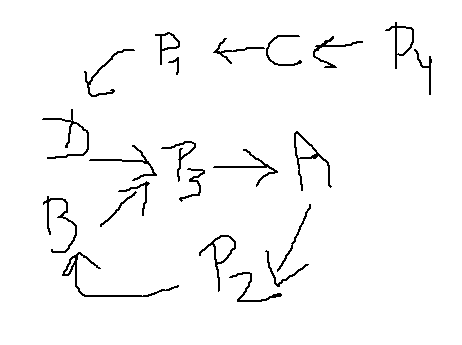 P1 ← C ← P4
D → P3 → A
B P2